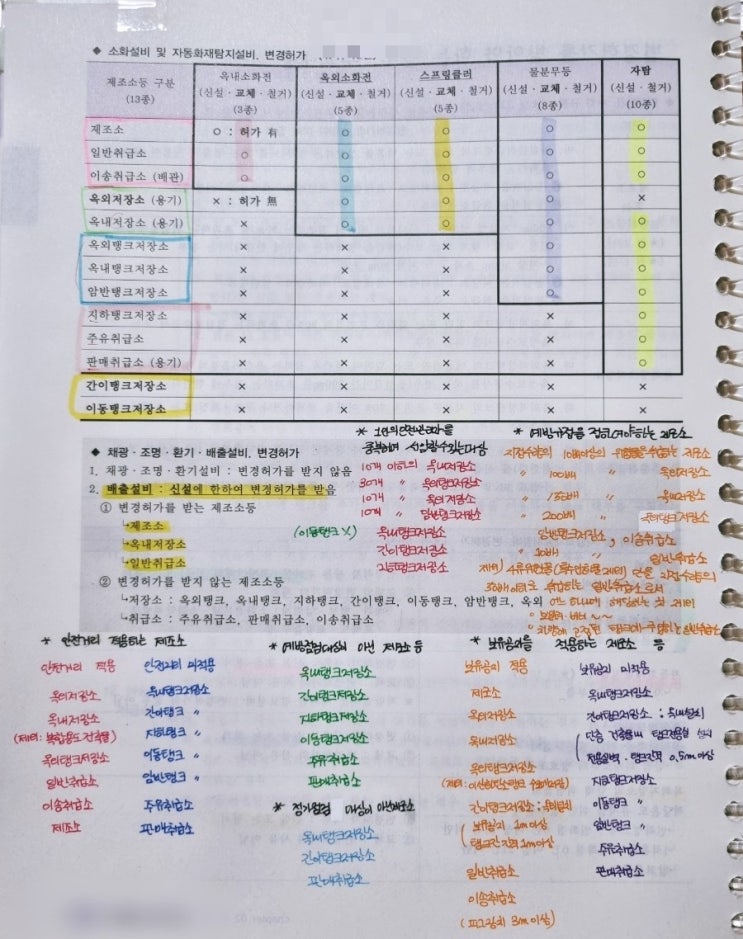 ◆ 소화설비 및 자동화재탐지설비. 변경허가
제조소등 구분 (13종) 옥내소화전 (신설·교체·철거) (3종) 옥외소화전 (신설·교체·철거) (5종) 스프링클러 (신설·교체·철거) (5종) 물분무등 (신설·교체·철거) (8종) 자탐 (신설·철거) (10종)
제조소 ○ : 허가 有 ○ ○ ○ ○
일반취급소 ○ ○ ○ ○ ○
이송취급소 (배관) ○ ○ ○ ○ ○
옥외저장소 (용기) × : 허가 無 ○ ○ ○ ×
옥내저장소 (용기) × ○ ○ ○ ○
옥외탱크저장소 × × × ○ ○
옥내탱크저장소 × × × ○ ○
암반탱크저장소 × × × ○ ○
지하탱크저장소 × × × × ○
주유취급소 × × × × ○
판매취급소 (용기) × × × × ○
간이탱크저장소 × × × × ×
이동탱크저장소 × × × × ×
◆ 채광·조명·환기·배출설비. 변경허가
1. 채광·조명·환기설비 : 변경허가를 받지 않음
2. 배출설비 : 신설에 한하여 변경허가를 받음
① 변경허가를 받는 제조소등
↳제조소
↳옥내저장소
↳일반취급소
② 변경허가를 받지 않는 제조소등
↳저장소 : 옥외탱크, 옥내탱크, 지하탱크, 간이탱크, 이동탱크, 암반탱크, 옥외
↳취급소 : 주유취급소, 판매취급소, 이송취급소
* 1인의 안전관리자를
중복하여 선임할 수 있는 대상
10개 이하의 옥내저장소
30개 〃 옥외탱크저장소
10개 〃 옥외저장소
10개 〃 암반탱크저장소
(이동탱크 X) 옥내탱크저장소
간이탱크저장소
지하탱크저장소
* 예방규정을 정하여야하는 제조소
지정수량의 10배이상의 위험물을 취급하는 제조소
〃 100배 〃 옥외저장소
〃 150배 〃 옥내저장소
〃 200배 〃 옥외탱크저장소
암반탱크저장소, 이송취급소
〃 10배 〃 일반취급소
30배이하로 취급하는 일반취급소로서
* 안전거리 적용하는 제조소
안전거리 적용
옥외저장소
옥내저장소
(제외: 복합용도 건축물)
옥외탱크저장소
일반취급소
이송취급소
제조소
안전거리 미적용
옥내탱크저장소
간이탱크 〃
지하탱크 〃
이동탱크 〃
암반탱크 〃
주유취급소
판매취급소
* 예방규정대상이 아닌 제조소 등
옥내탱크저장소
간이탱크저장소
지하탱크저장소
이동탱크저장소
주유취급소
판매취급소
* 정기점검 대상이 아닌제조소
옥내탱크저장소
간이탱크저장소
판매취급소
* 보유공지를 적용하는 제조소 등
보유공지 적용
제조소
옥외저장소
옥내저장소
옥외탱크저장소
간이탱크저장소 : 옥외설치
( 보유공지 1m이상
탱크간거리 1m이상
일반취급소
이송취급소
보유공지 미적용
옥내탱크저장소
간이탱크저장소 : 옥내설치
( 단층 건축물내 탱크전용실 설치
전용실벽·탱크간격 0.5m이상
지하탱크저장소
이동탱크 〃
암반탱크 〃
주유취급소
판매취급소